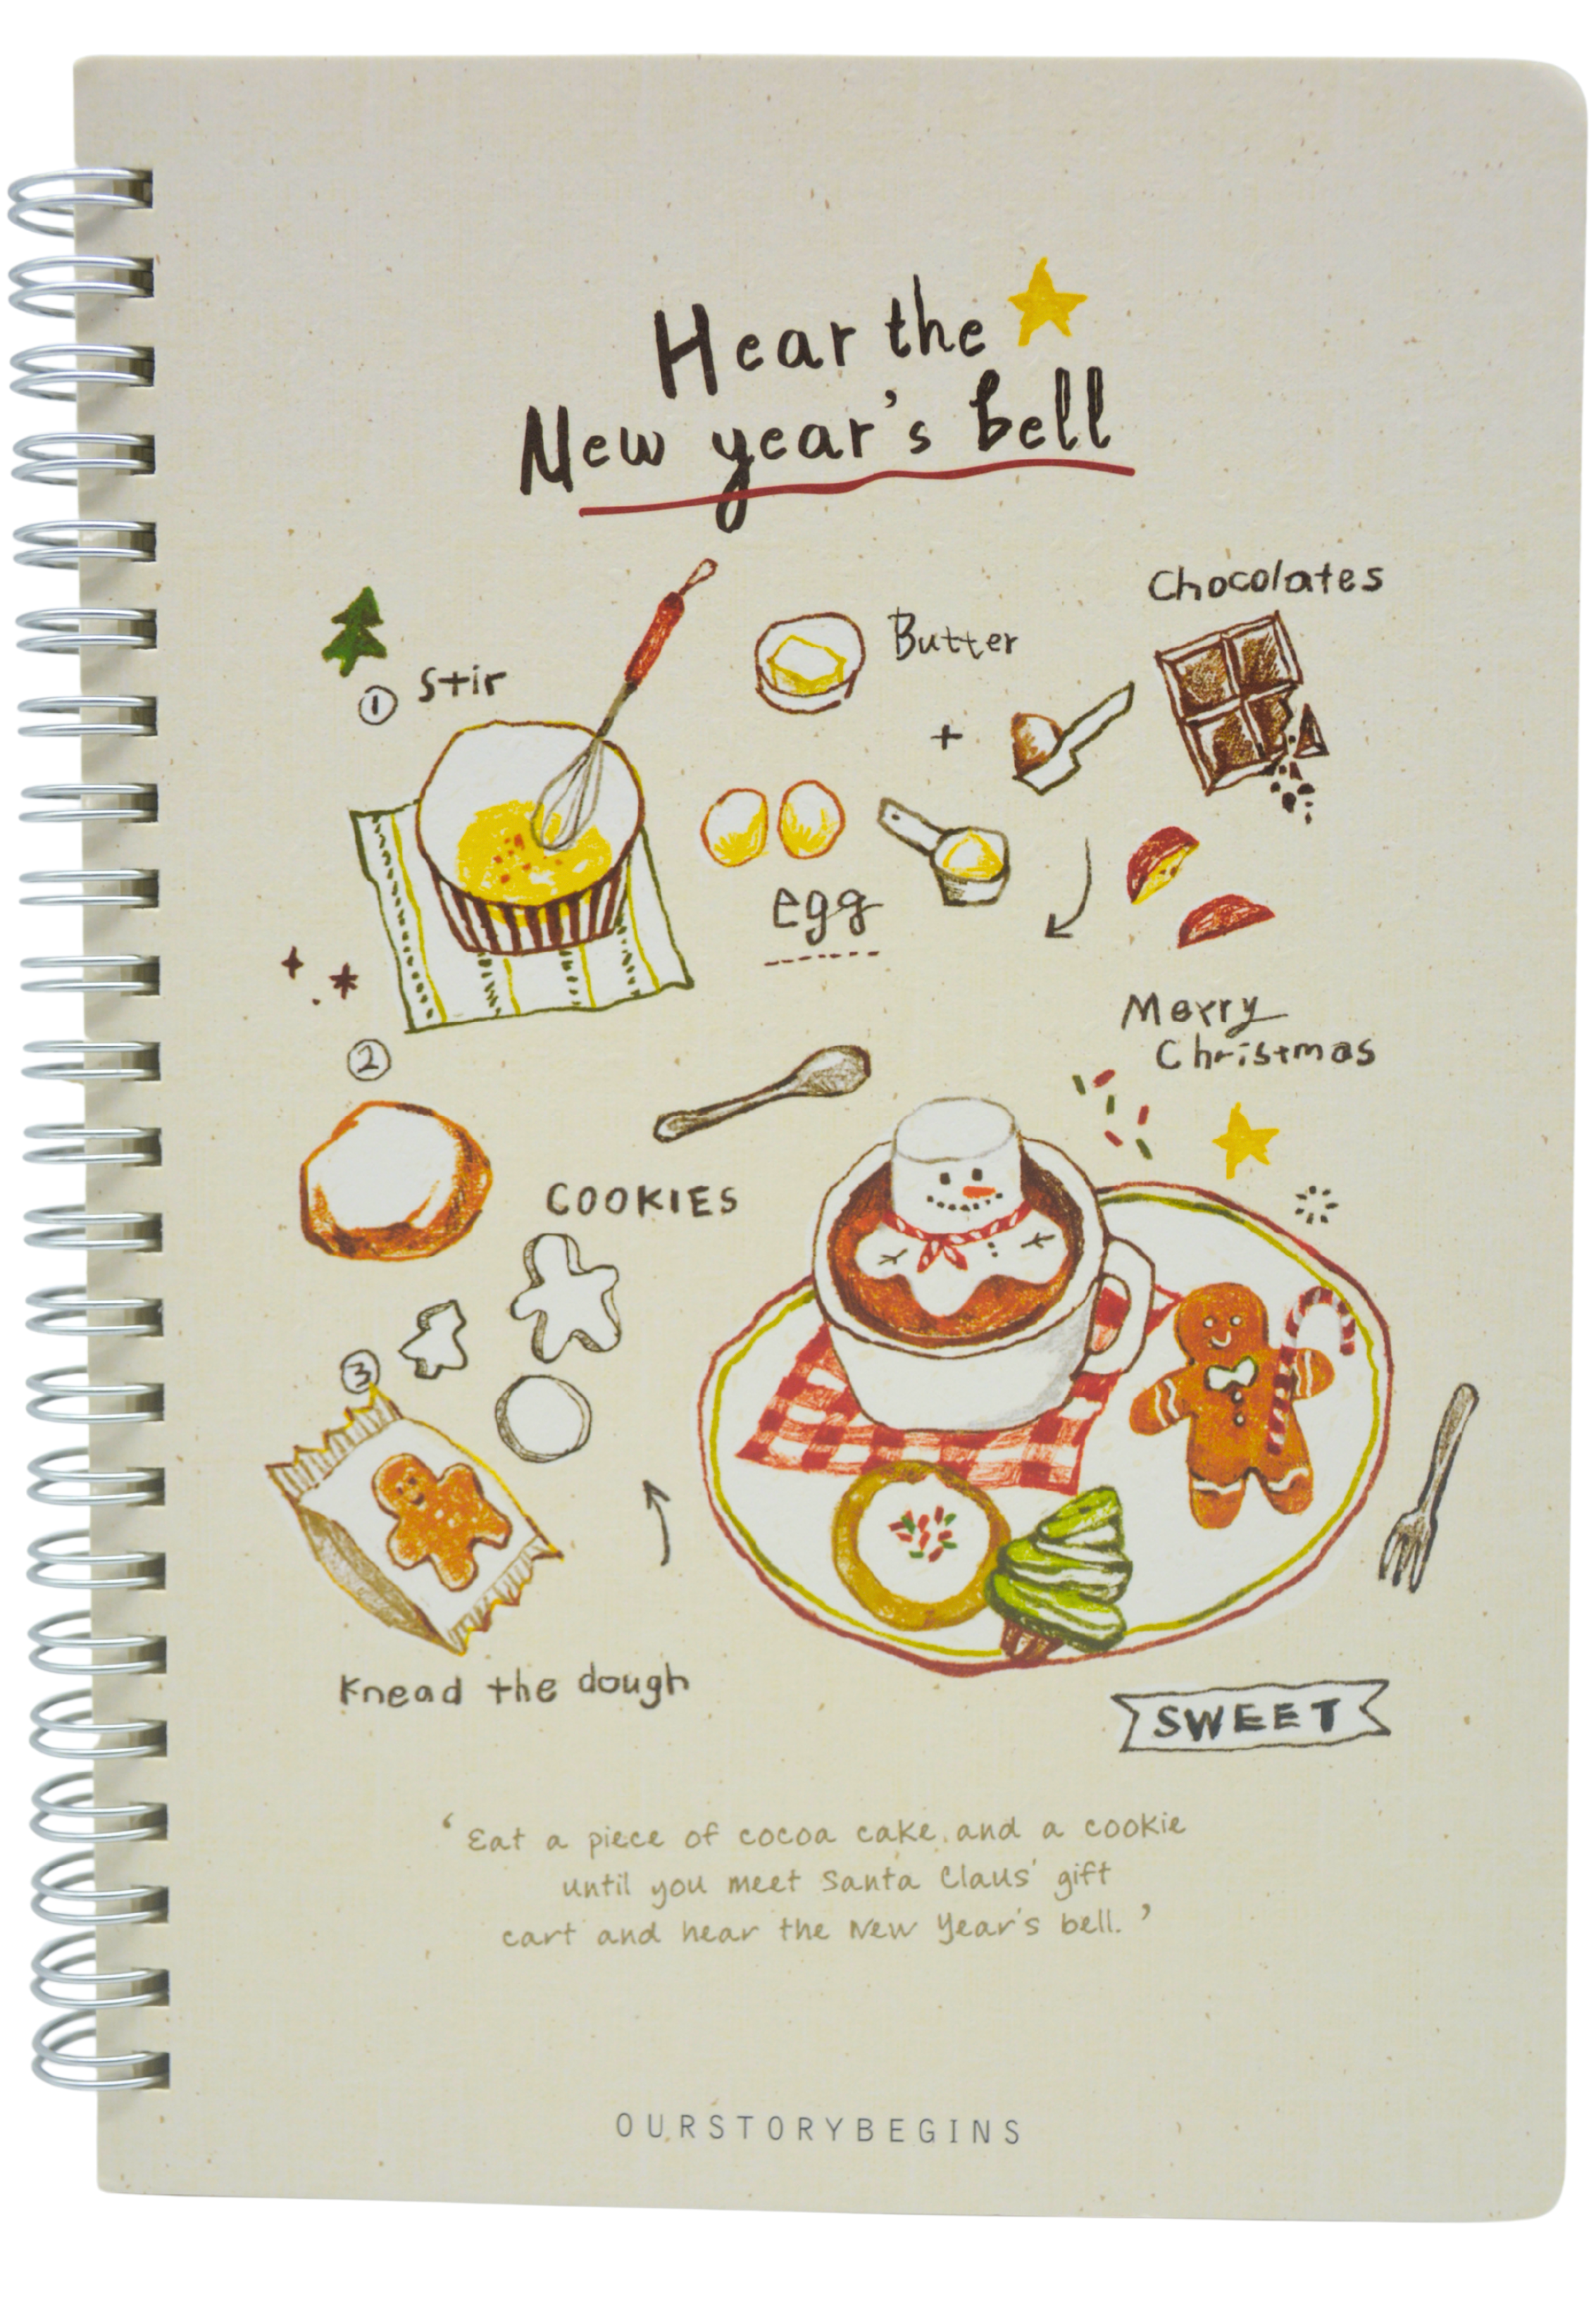 Hear the
New year's bell
Chocolates
Butter
① Stir
+
egg
Merry
Christmas
②
COOKIES
③
Knead the dough
SWEET
‘Eat a piece of cocoa cake and a cookie
until you meet Santa Claus' gift
cart and hear the New Year's bell.’
OURSTORYBEGINS